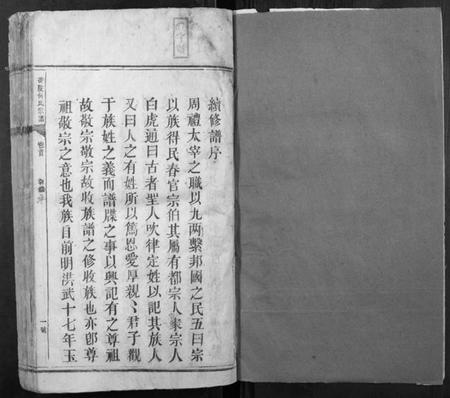 續修譜序
周禮太宰之職以九兩繫邦國之民五曰宗
以族得民春官宗伯其屬有都宗人家宗人
白虎通曰古者聖人吹律定姓以記其族人
又曰人之有姓所以篤恩愛厚親〻君子觀
于族姓之義而譜牒之事以興記有之尊祖
故敬宗敬宗故收族譜之修收族也亦卽尊
祖敬宗之意也我族自前明洪武十七年玉
卷首
一號